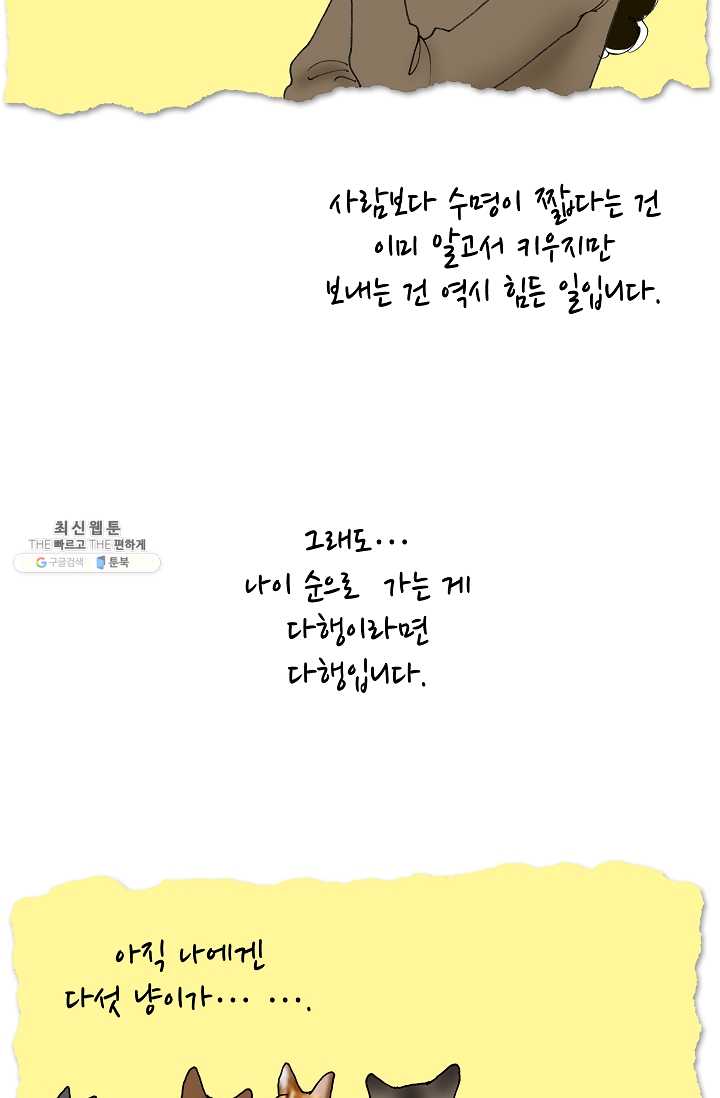 사람보다 수명이 짧다는 건
이미 알고서 키우지만
보내는 건 역시 힘든 일입니다.
최신웹툰
THE 빠르고 THE 편하게
구글검색 툰북
그래도···
나이 순으로 가는 게
다행이라면
다행입니다.
아직 나에겐
다섯 냥이가··· ···.